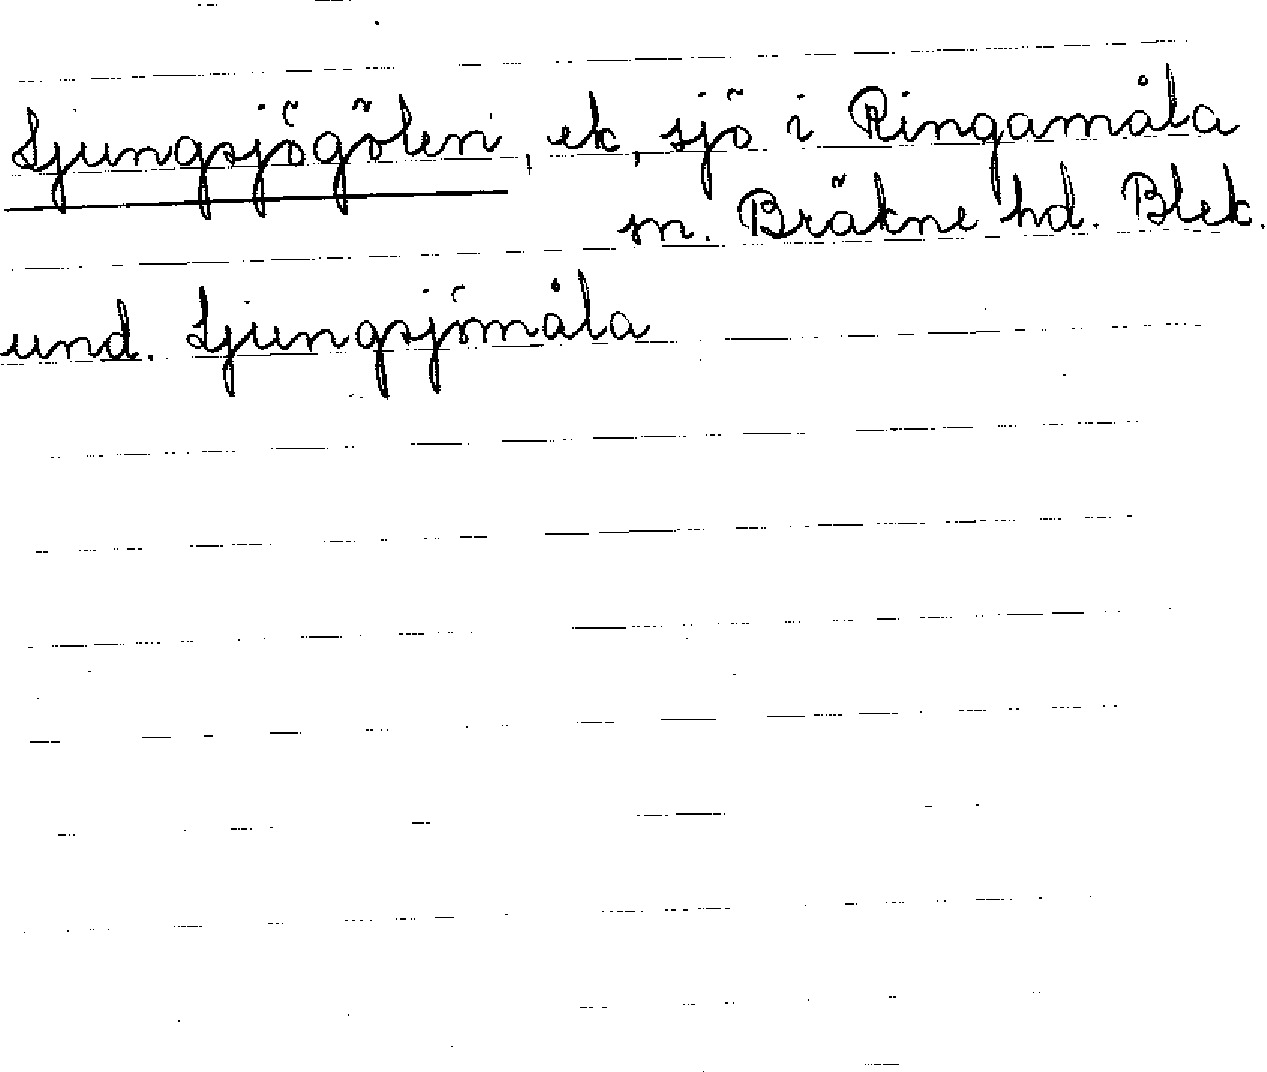 Ljungsjögölen, ek, sjö i Ringamåla
sn. Bräkne hd. Blek.
und. Ljungsjömåla